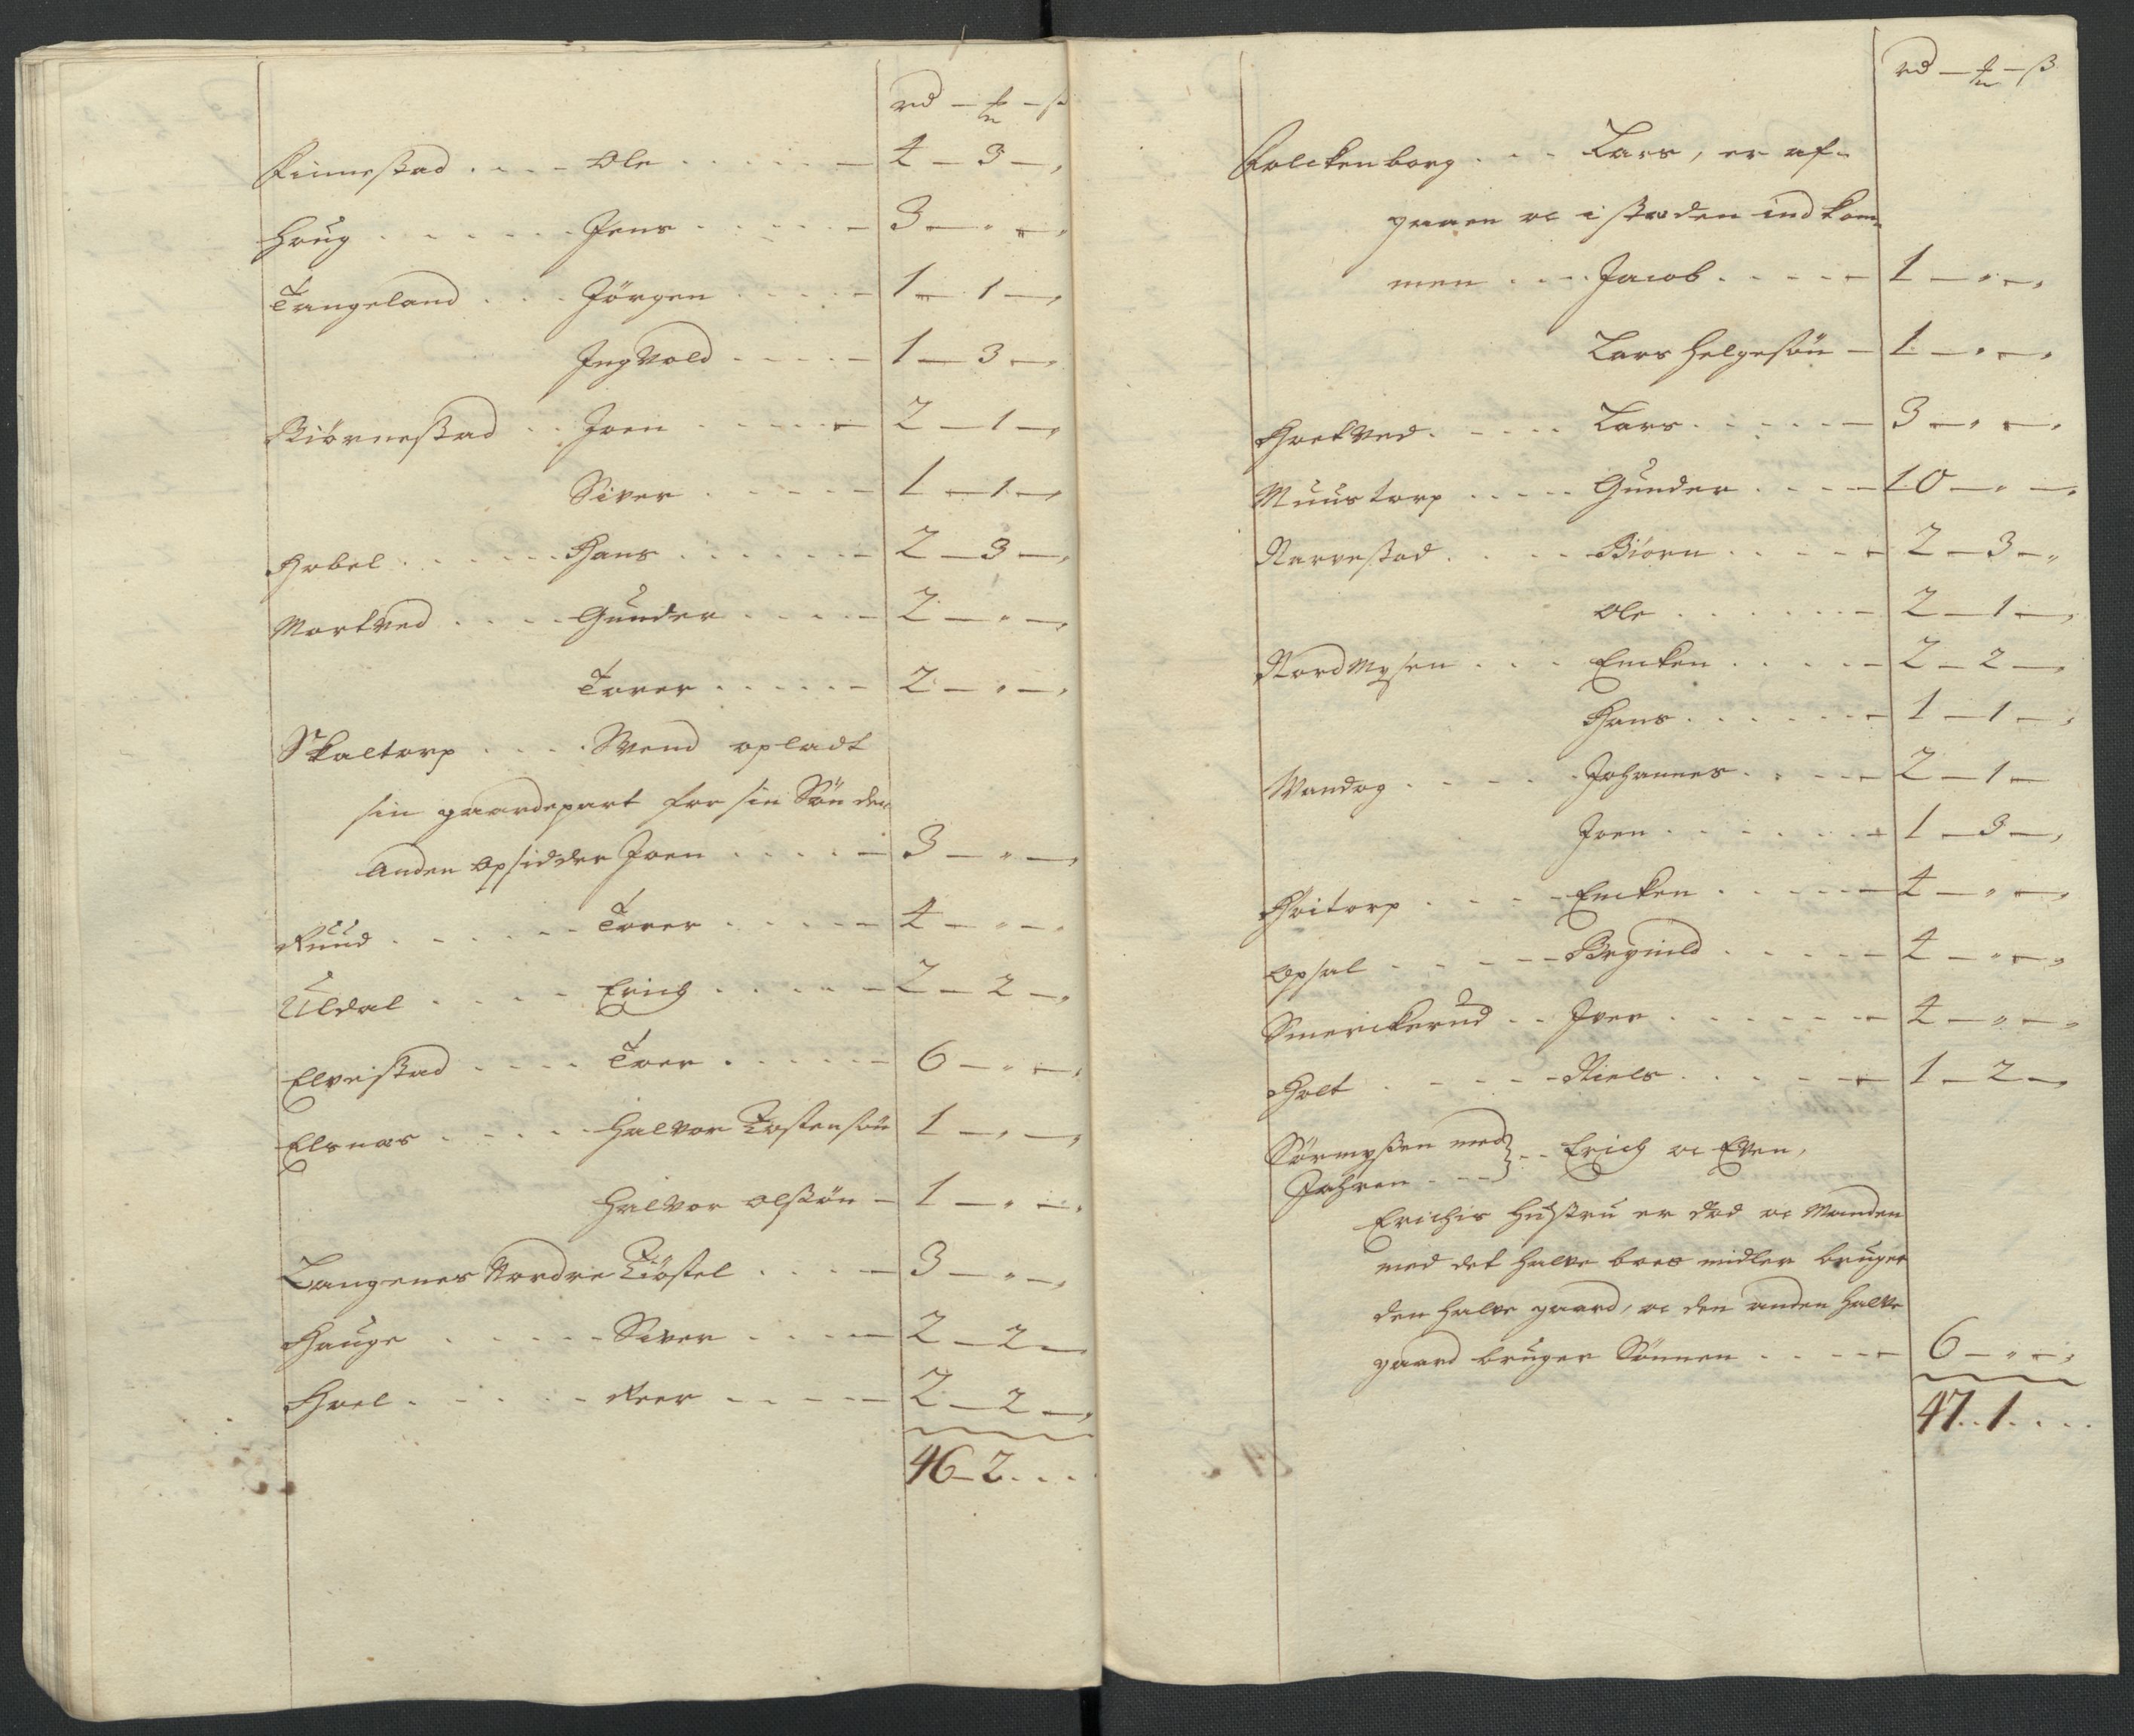 rd — — ß
Finnestad . . . . Ole . . . . . — 4 — 3 — ,
Houg . . . . . . Jens . . . . . — 3 — „ — „
Tangeland . . . Jørgen . . . . — 1 — 1 — ,
Ingvold . . . . — 1 — 3 — ,
Biørnestad . . Joen . . . . . — 2 — 1 — ,
Siver . . . . . — 1 — 1 — ,
Hobel . . . . . . Hans . . . . . . — 2 — 3 — ,
Mortved . . . . Gunder . . . . — 2 — „ — ,
Torer . . . . . — 2 — „ — ,
Skaltorp . . . . Svend opladt
sin gaardepart for sin Søn den
anden opsidder Joen . . . . — 3 — „ — ,
Ruud . . . . . . Torer . . . . . — 4 — „ — „
Uldal . . . . . Erich . . . . . — 2 — 2 — ,
Elvestad . . . . Toer . . . . . — 6 — „ — ,
Elsnas . . . . . Halvor Tostensøn 1 — „ — ,
Halvor Olssøn — 1 — „ — ,
Langenes Nordre Tiøstel . . . . — 3 — „ — ,
Hauge . . . . . Siver . . . . — 2 — 2 —
Hoel . . . . . . Peer . . . . — 2 — 2 — ,
46 — 2 . . .
rd — — ß
Folckenborg . . . Lars, er af-
gaaen oc i staden ind kom-
men . . . . Jacob . . . . . — 1 — „ — ,
Lars Helgesøn — 1 — „ — ,
Hortved . . . . . Lars . . . . . — 3 — „ — ,
Muustorp . . . . . Gunder . . . . — 10 — „ — ,
Narvestad . . . . Biørn . . . . . — 2 — 3 — „
Ole . . . . . . — 2 — 1 — ,
Nordmysen . . . Encken . . . . . — 2 — 2 — ,
Hans . . . . . . — 1 — 1 — ,
Vandog . . . . . Johannes . . . . — 2 — 1 —
Joen . . . . . . — 1 — 3 — ,
Høitorp . . . . Encken . . . . . — 4 — „ — ,
Opsal . . . . . Brynild . . . . . — 4 — „ — „
Smerckerud . . Iver . . . . . . — 4 — „ — „
Holt . . . . . Niels . . . . . — 1 — 2 — ,
Sørmyssen med } . . Erich oc Even,
Jahren . . .
Erichis Hustru er død oc Manden
med det halve boes midler bruger
den halve gaard, oc den anden halve
gaard bruger Sønnen . . . . . — 6 — „ — ,
47 . . 1 . . . .